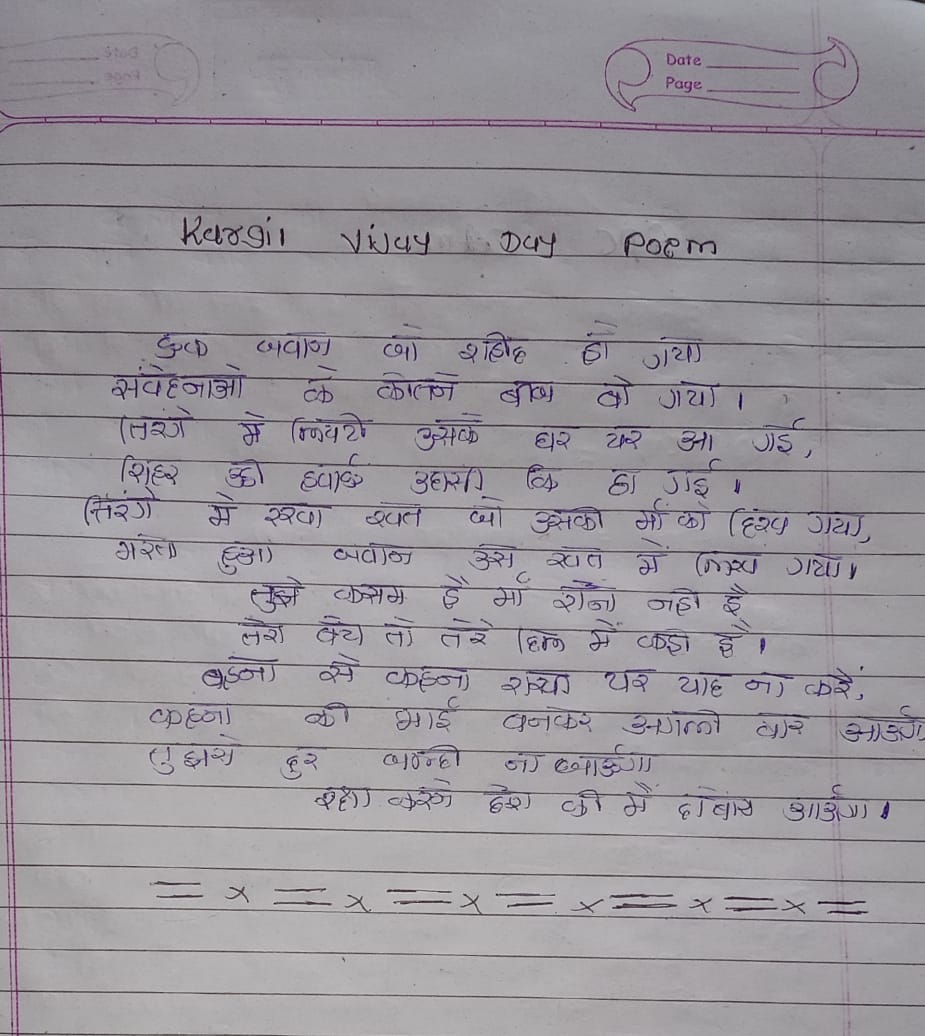 Date
Page
Kargil Vijay Day Poem
एक जवान जो शहीद हो गया
संवेदनाओ के कीतने बीज बो गया ।
तिरंगे मे लिपटी उसके घर पर आ गई,
शिहर की हवाई उदासी कि हो गई ।
तिरंगे मे रखा खत जो उसकी माँ को दिख गया,
मरता हुआ जवान उस खत में लिख गया ।
तुझे कसम है माँ रोना नही है
तेरा बेटा तो तेरे दिल में कही है ।
बहना से कहना राखी पर याद ना करें,
कहना की भाई बनकर अगली बार आऊंगा
तुझसे दुर जल्दी ना जाऊँगा
रक्षा करने देश की में दोबारा आऊँगा ।
= x = x = x = x = x = x =